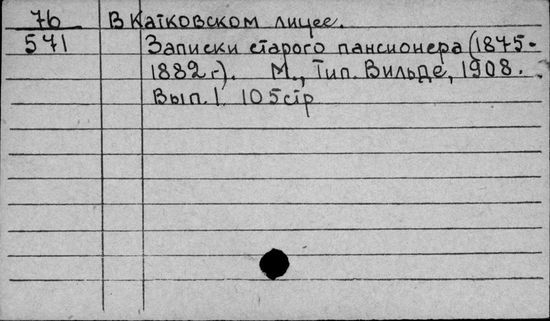 76 В Катковском лицее.
571 Записки старого пансионера (1875-
1882 г). М., Тип. Вильде, 1908.
Вып. 1. 105 стр